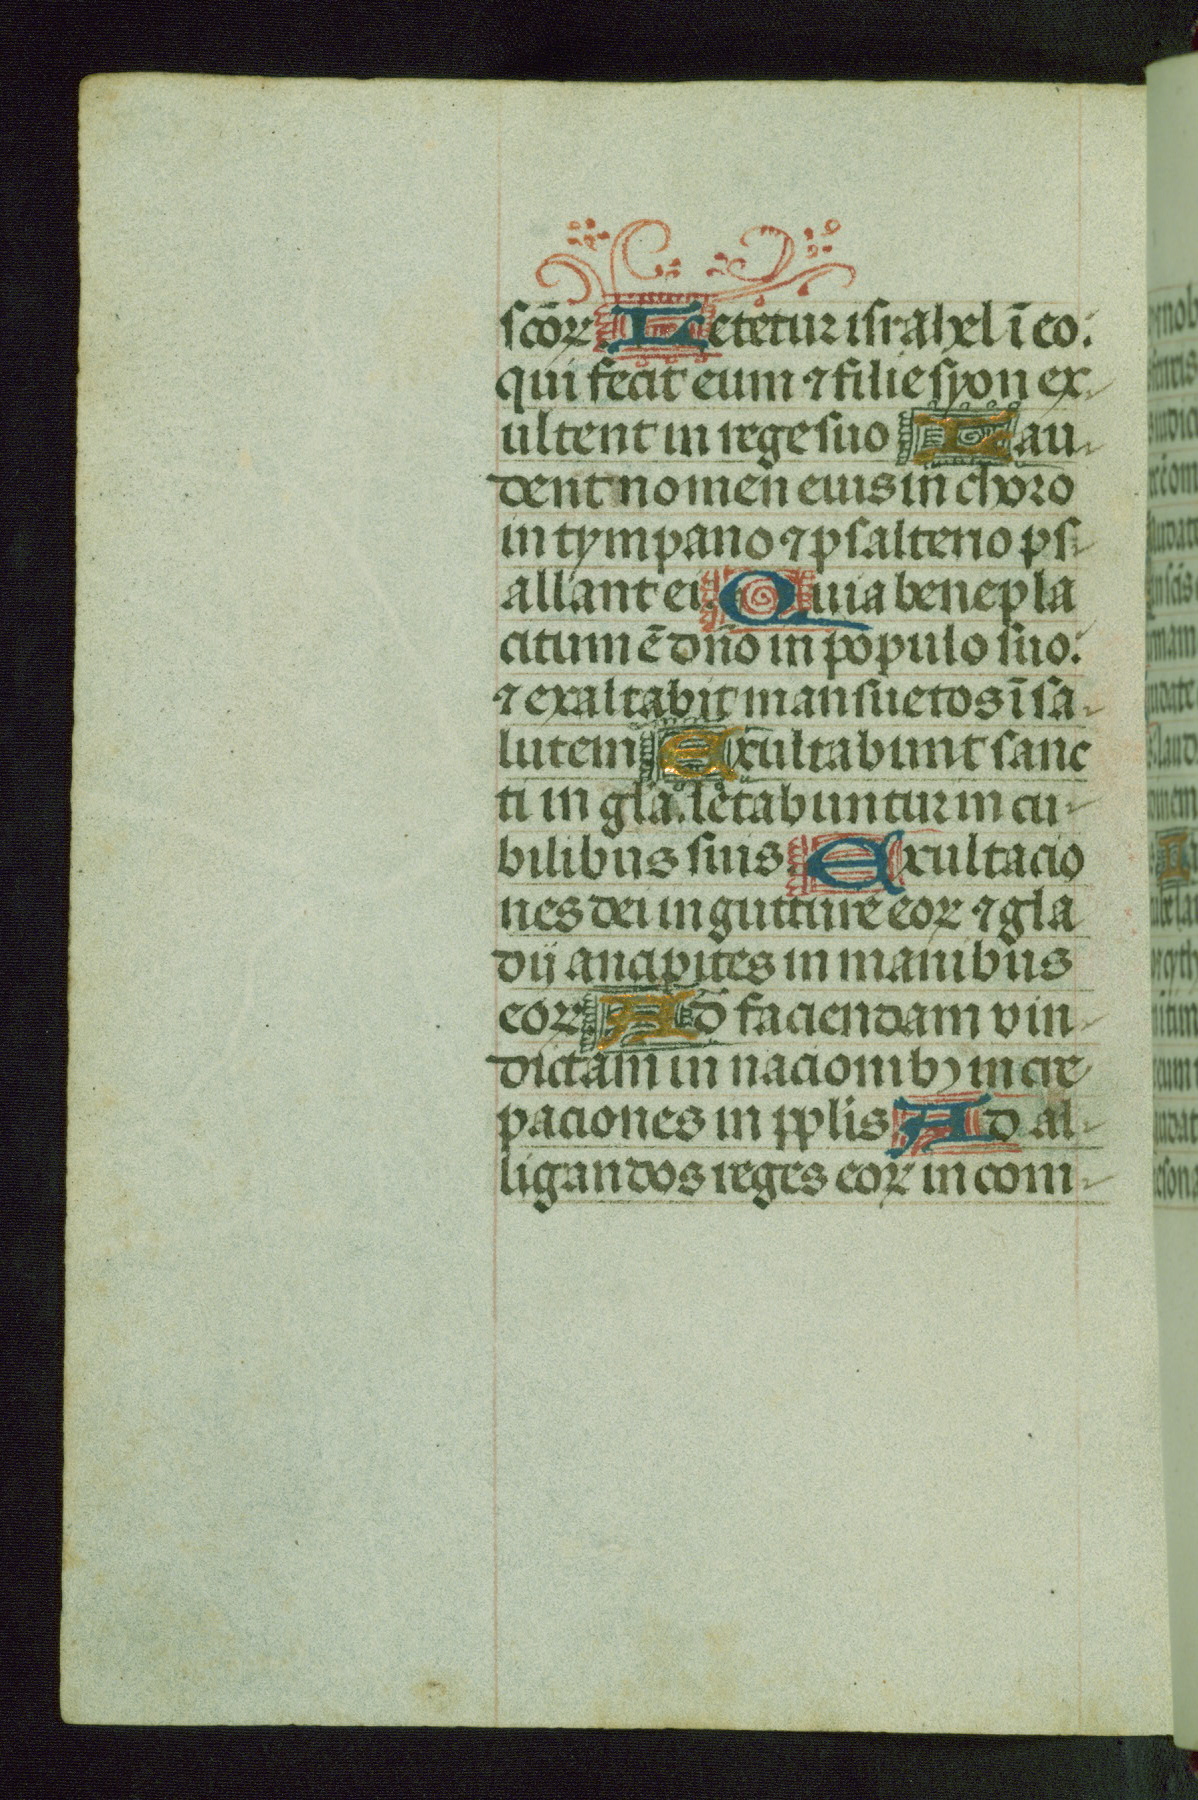 sco᷑ꝝ Letetur israhel ī eo.
qui fecit eum ⁊ filie syon ex-
ultent in rege suo Lau-
dent nomen eius in choro
in tympano ⁊ psalterio ps-
allant ei. Quia benepla
citum ē dn̄o in populo suo:
⁊ exaltabit mansuetos ī sa-
lutem Exultabunt sanc
ti in gl̄a. letabuntur in cu-
bilibus suis. Exultacio
nes dei in gutture eoꝝ ⁊ gla
dij ancipites in manibus
eoꝝ Ad faciendam vin-
dictam in nacionibꝫ incre
paciones in pplis Ad al-
ligandos reges eoꝝ in com-